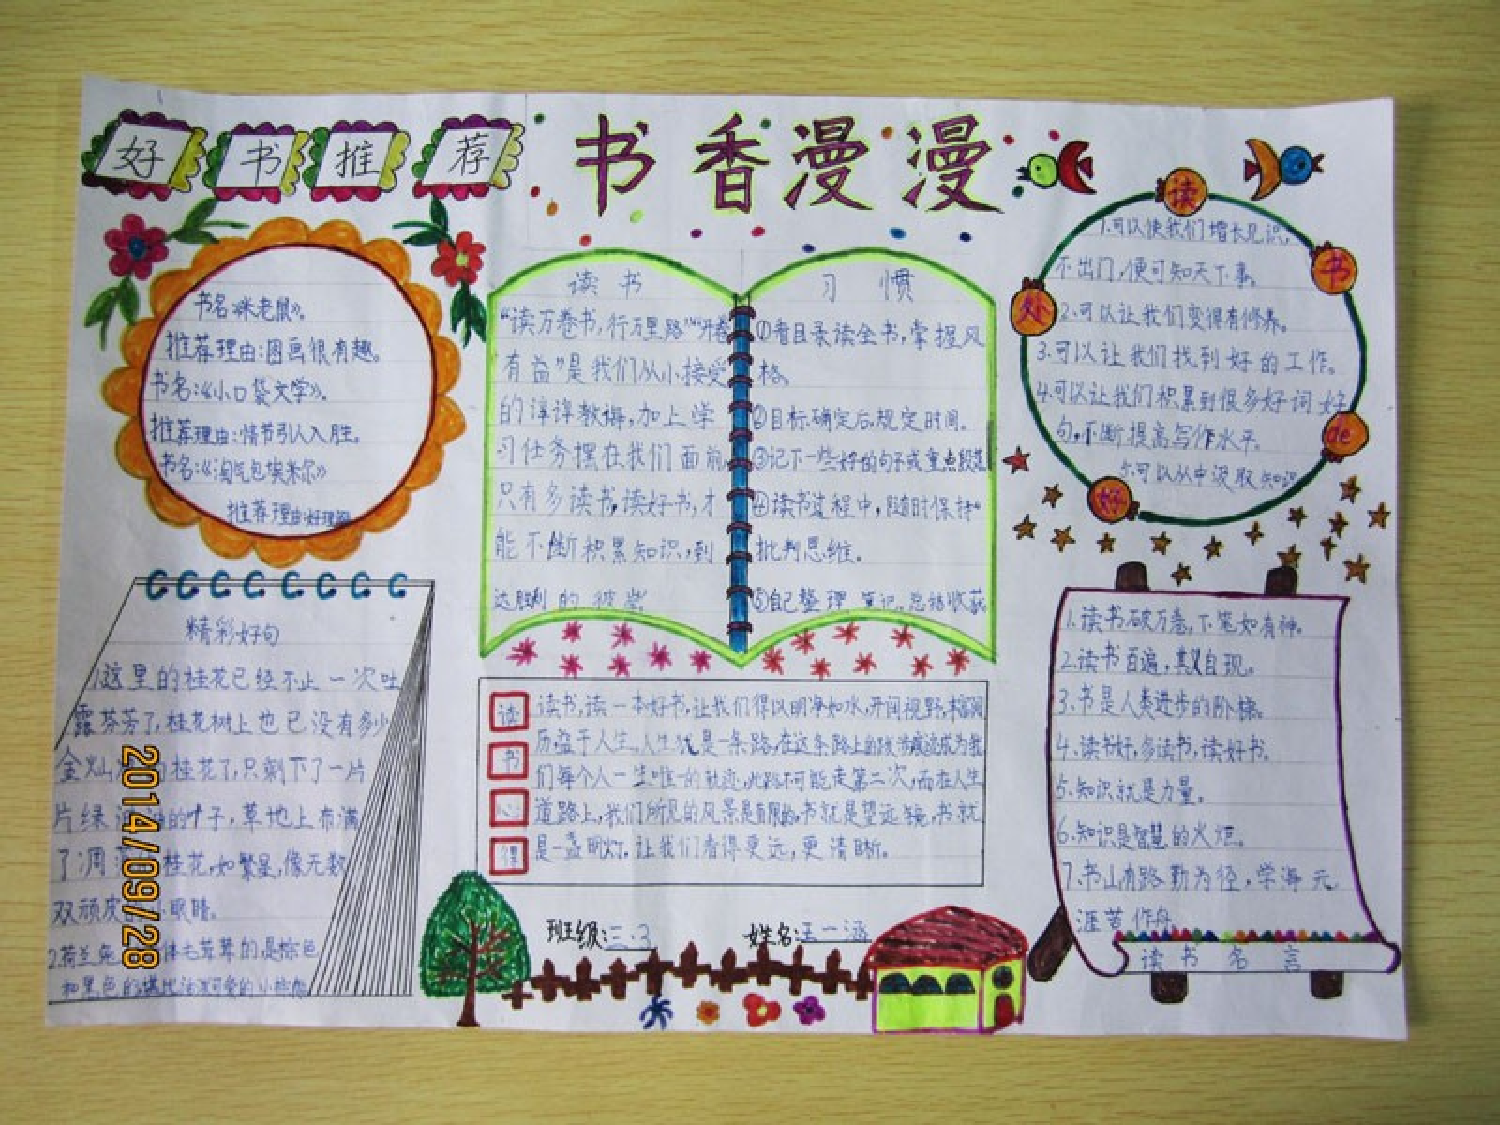 好书推荐
书香漫漫
书名《米老鼠》。
推荐理由:图画很有趣。
书名:《小口袋文学》。
推荐理由:情节引人入胜。
书名:《淘气包埃米尔》
推荐理由:好理解
读书
“读万卷书,行万里路”“开卷
有益”是我们从小接受
的谆谆教诲,加上学
习任务摆在我们面前,
只有多读书,读好书,才
能不断积累知识,到
达胜利的彼岸
习惯
①看目录读全书,掌握风
格。
②目标确定后,规定时间。
③记下一些好的句子或重点段落
④读书过程中,随时保持
批判思维。
⑤自己整理笔记,总结收获
读书de好处
1.可以使我们增长见识。
不出门,便可知天下事。
2.可以让我们变得有修养。
3.可以让我们找到好的工作。
4.可以让我们积累到很多好词好
句,不断提高写作水平。
5.可以从中汲取知识
精彩好句
1.这里的桂花已经不止一次吐
露芬芳了,桂花树上也已没有多少
金灿 桂花了,只剩下了一片
片绿 的叶子,草地上布满
了凋 桂花,如繁星,像无数
双顽皮 小眼睛。
2.荷兰兔 体毛茸茸的,是棕色
和黑色的
读书心得
读书,读一本好书,让我们得以明净如水,开阔视野,丰富阅
历,益于人生。人生就是一条路,在这条路上的跋涉痕迹成为我
们每个人一生唯一的轨迹,此路不可能走第二次,而在人生
道路上,我们所见的风景是有限的,书就是望远镜,书就
是一盏明灯,让我们看得更远,更清晰。
1.读书破万卷,下笔如有神。
2.读书百遍,其义自现。
3.书是人类进步的阶梯。
4.读书好,多读书,读好书。
5.知识就是力量。
6.知识是智慧的火炬。
7.书山有路勤为径,学海无
涯苦作舟
读书名言
班级:三.3 姓名:王一涵
2014/09/28